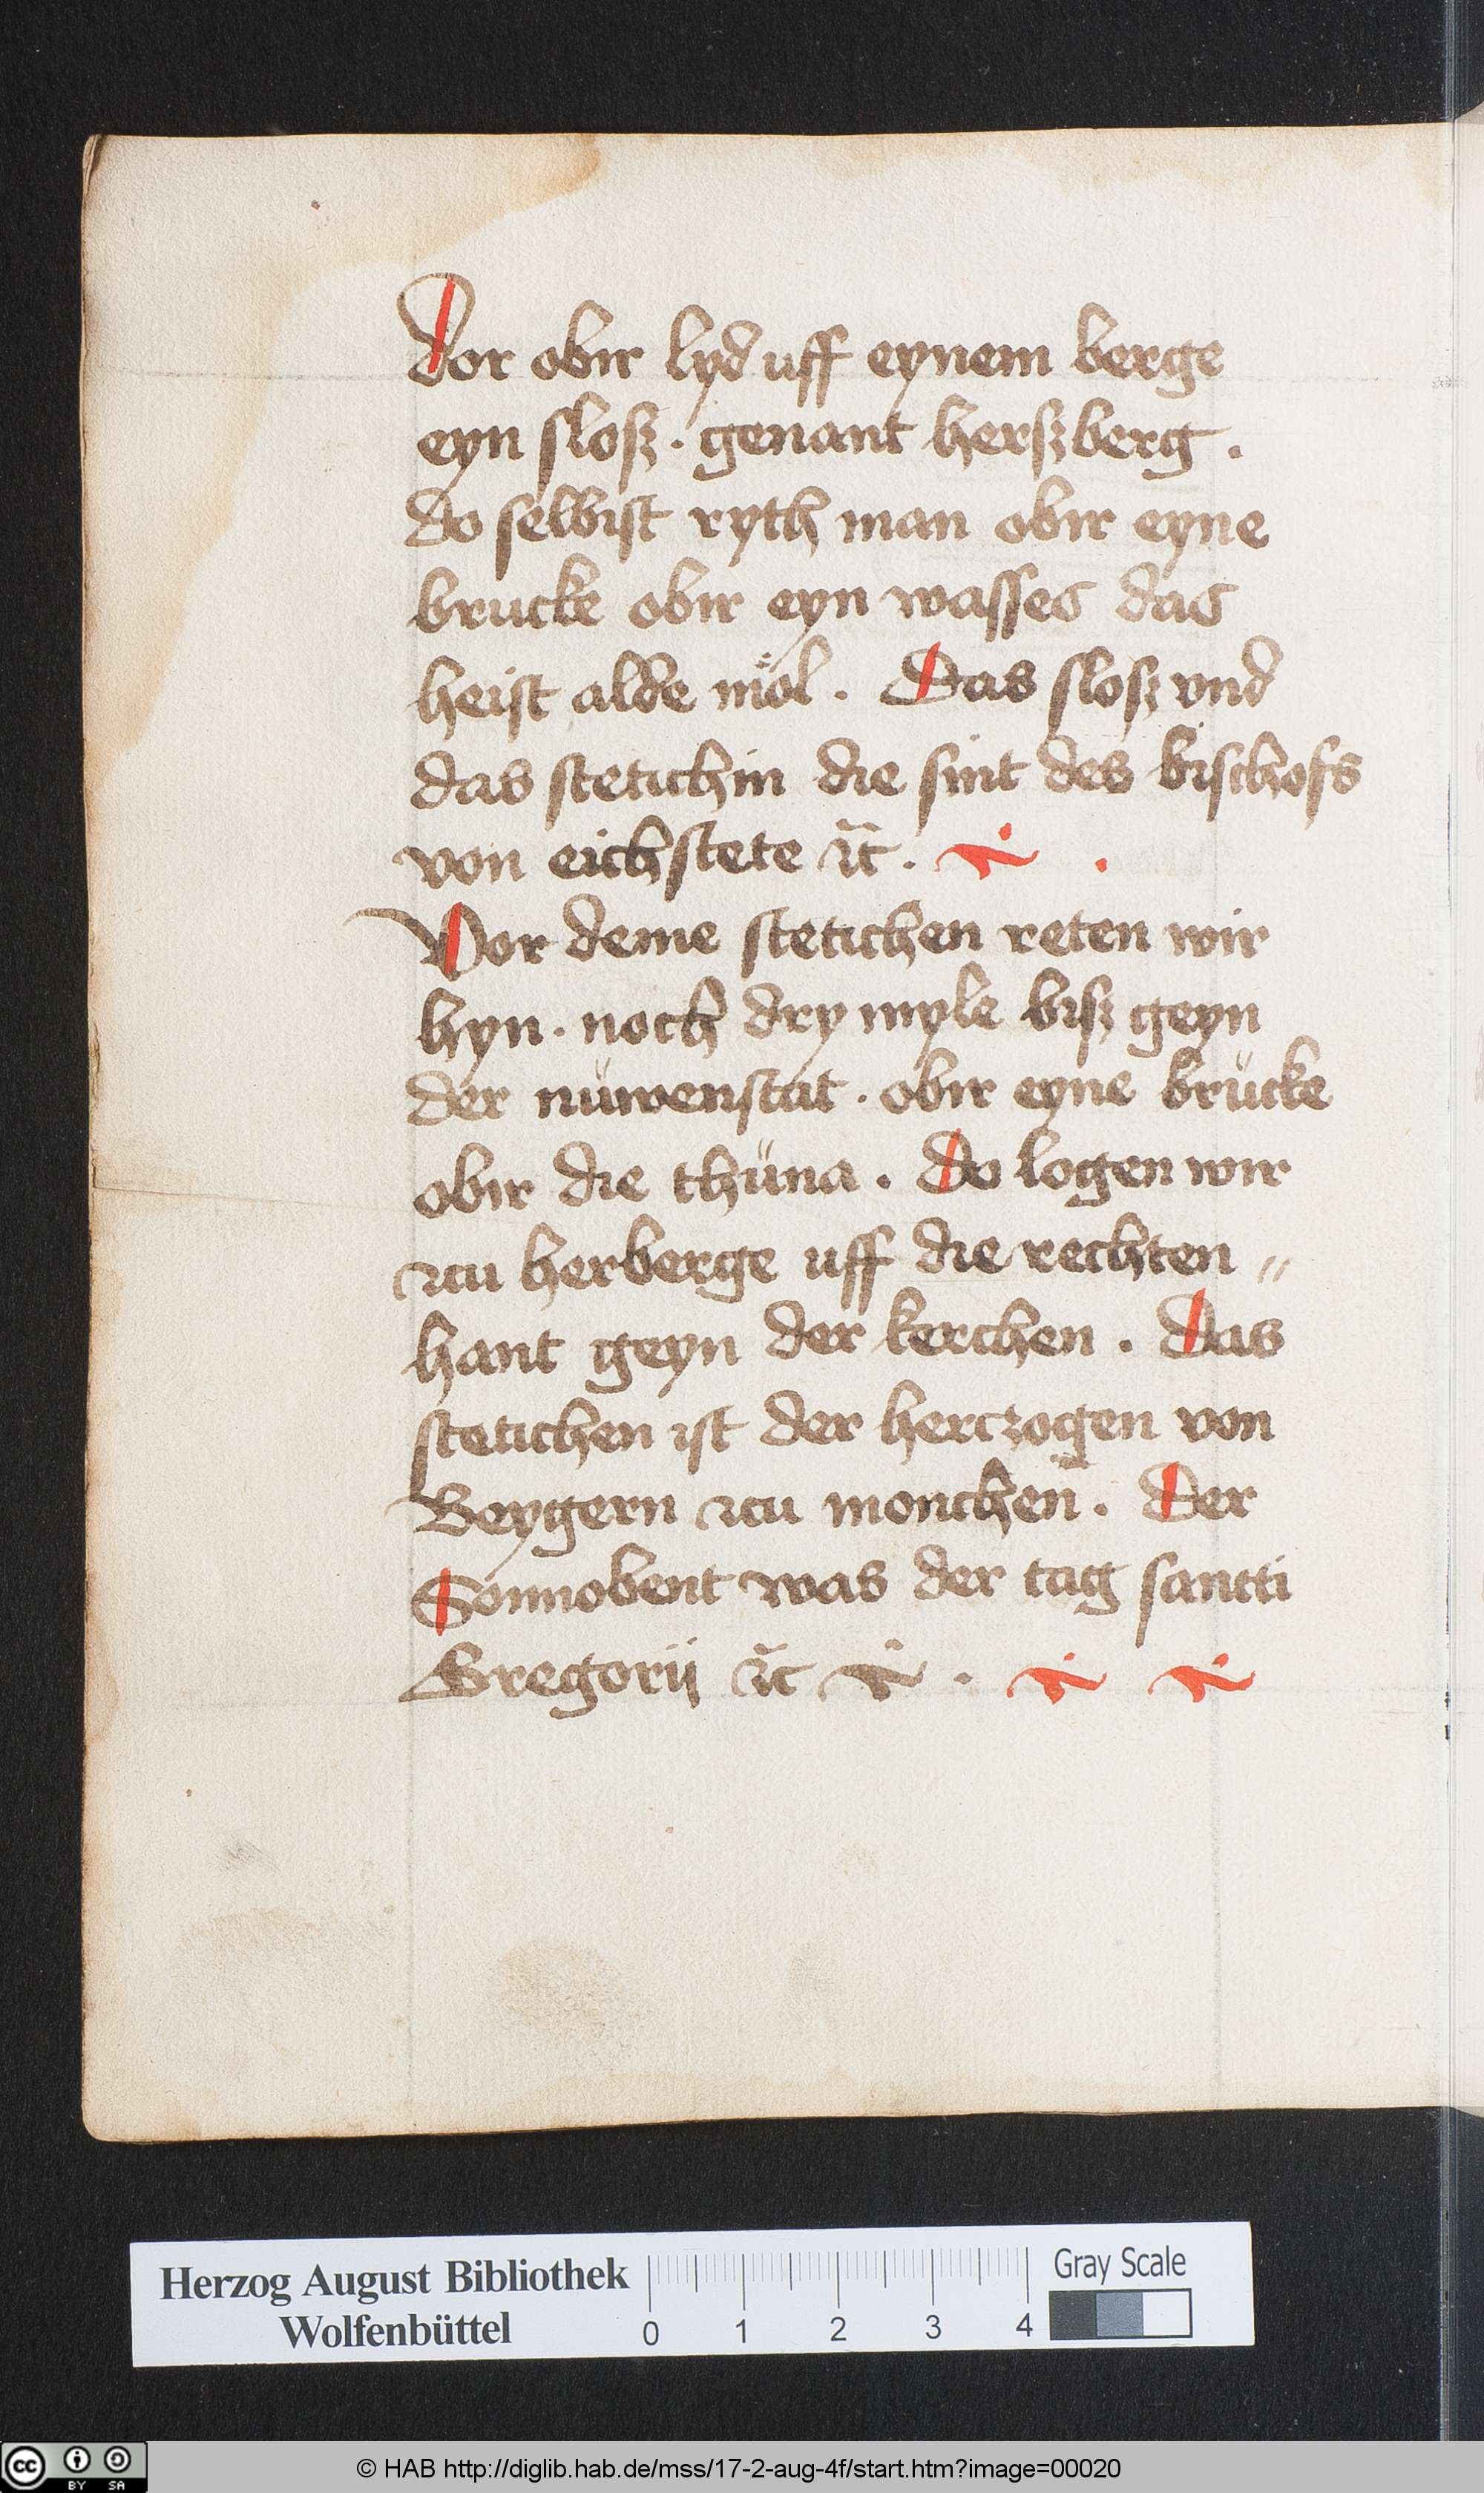 dor obir lyd uff eynem berge
eyn sloß · genant herßberg .
do selbist ryth man obir eyne
brucke obir eyn wasses das
heist alde mol . Das sloß vnd
das stetichin die sint des bischofs
von eichstete ꝛc̃ .
Vor deme stetichen reten wir
hyn · noch dry myle biß geyn
der nüwenstat · obir eyne brücke
obir die thüna . Do logen wir
zcu herberge uff die rechten „
hant geyn der kerchen . Das
stetichen ist der herczogen von
Beygern zcu monchen̄ . Der
Sonnobent was der tag sancti
Gregorij ꝛc̃ .
Herzog August Bibliothek
Wolfenbüttel
0 1 2 3 4
Gray Scale
cc BY SA
© HAB http://diglib.hab.de/mss/17-2-aug-4f/start.htm?image=00020